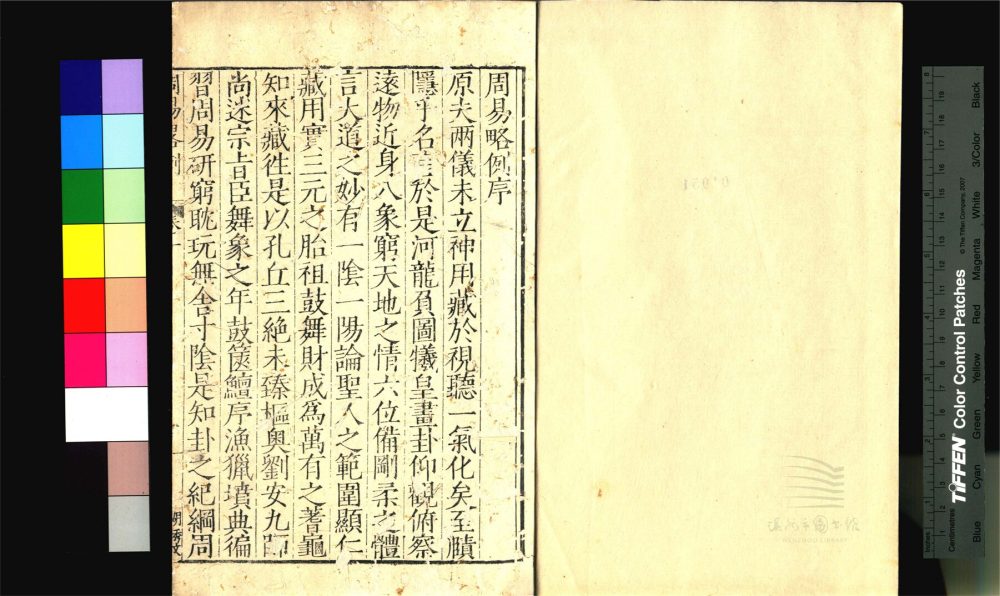 周易略例序
原夫兩儀未立神用藏於視聽一氣化矣至賾
隱乎名言於是河龍負圖犧皇畫卦仰觀俯察
遠物近身八象窮天地之情六位備剛柔之體
言大道之妙有一陰一陽論聖人之範圍顯仁
藏用實三元之胎祖鼓舞財成為萬有之蓍龜
知來藏徃是以孔丘三絶未臻樞奧劉安九師
尚迷宗旨臣舞象之年鼓篋鱣序漁獵墳典徧
習周易研窮耽玩無舍寸陰是知卦之紀綱周
周易畧例
溫州市圖書館
WENZHOU LIBRARY
TIFFEN Color Control Patches
© The Tiffen Company, 2007
Centimetres
Inches
Blue
Cyan
Green
Yellow
Red
Magenta
White
3/Color
Black